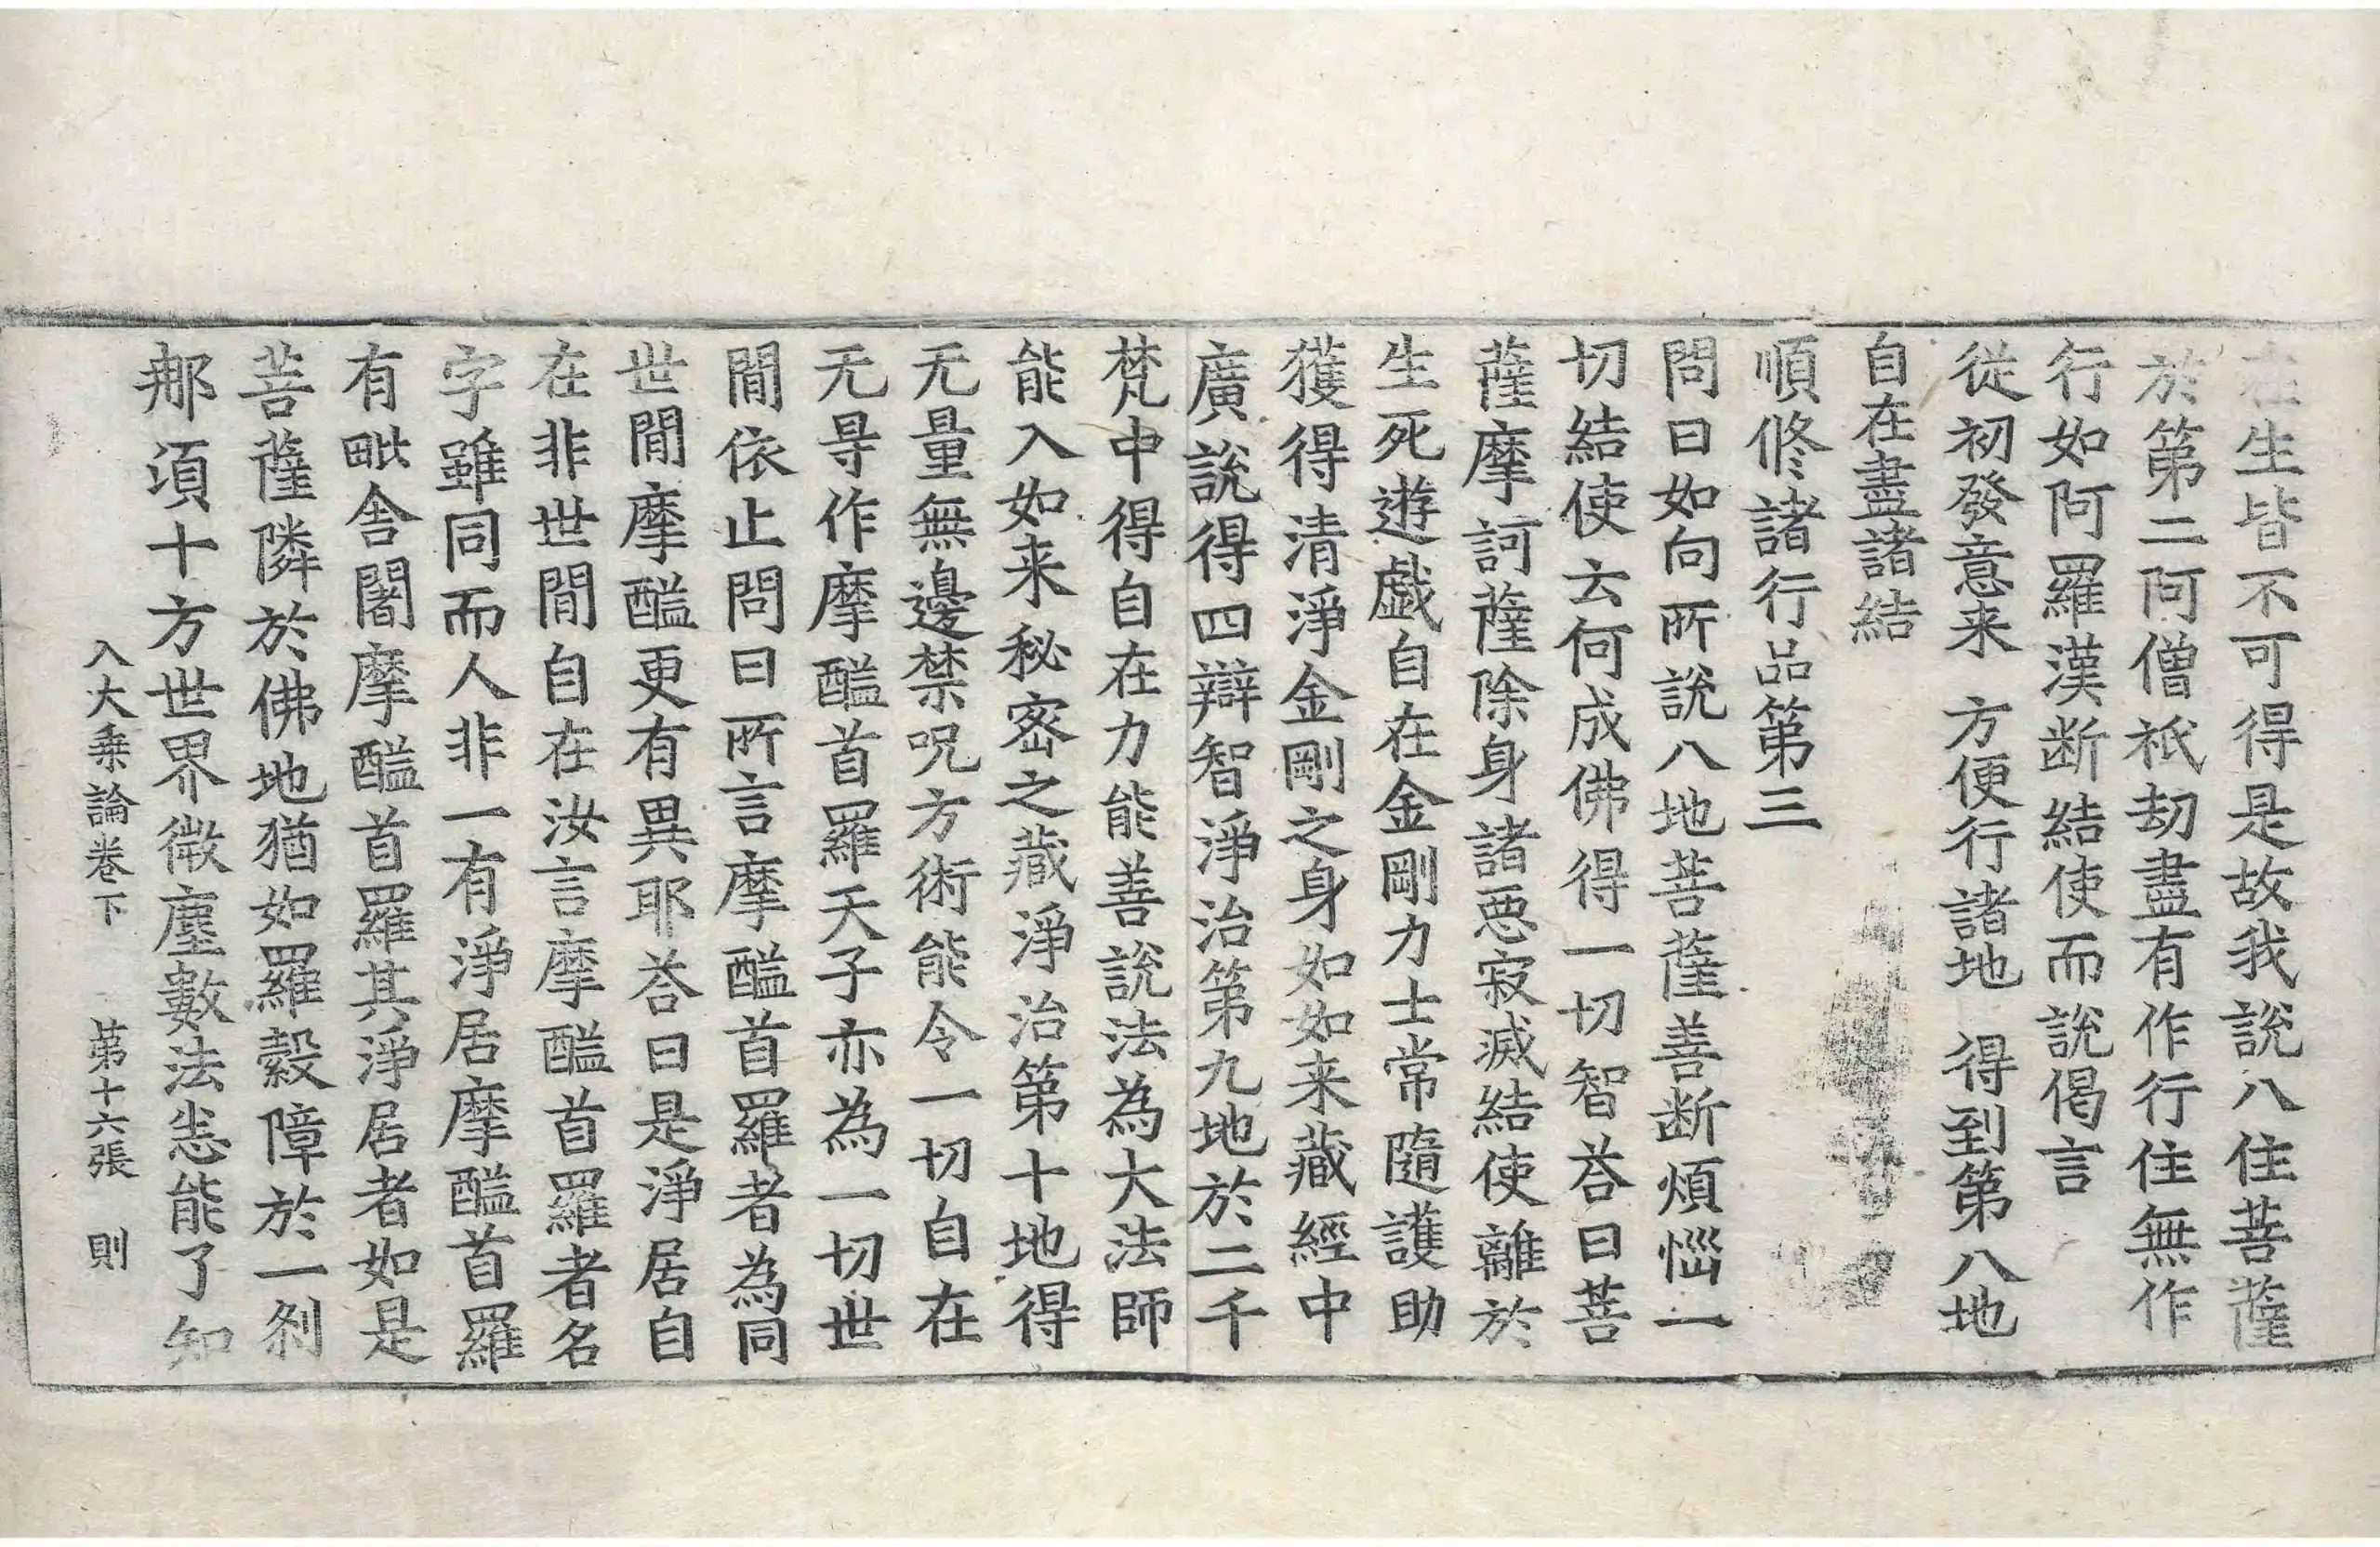 在生皆不可得是故我說八住菩薩
於第二阿僧祇劫盡有作行住無作
行如阿羅漢断結使而說偈言
從初發意来 方便行諸地 得到第八地
自在盡諸結
順修諸行品第三
問曰如向所說八地菩薩善断煩惱一
切結使云何成佛得一切智荅曰菩
薩摩訶薩除身諸惡寂滅結使離於
生死遊戲自在金剛力士常隨護助
獲得清淨金剛之身如如来藏經中
廣說得四辯智淨治第九地於二千
梵中得自在力能善說法為大法師
能入如来秘密之藏淨治第十地得
无量無邊禁呪方術能令一切自在
无㝵作摩醯首羅天子亦為一切世
閒依止問曰所言摩醯首羅者為同
世閒摩醯更有異耶荅曰是淨居自
在非世閒自在汝言摩醯首羅者名
字雖同而人非一有淨居摩醯首羅
有毗舍闍摩醯首羅其淨居者如是
菩薩隣於佛地猶如羅縠障於一剎
那頃十方世界微塵數法悉能了知
入大乗論卷下 第十六張 則